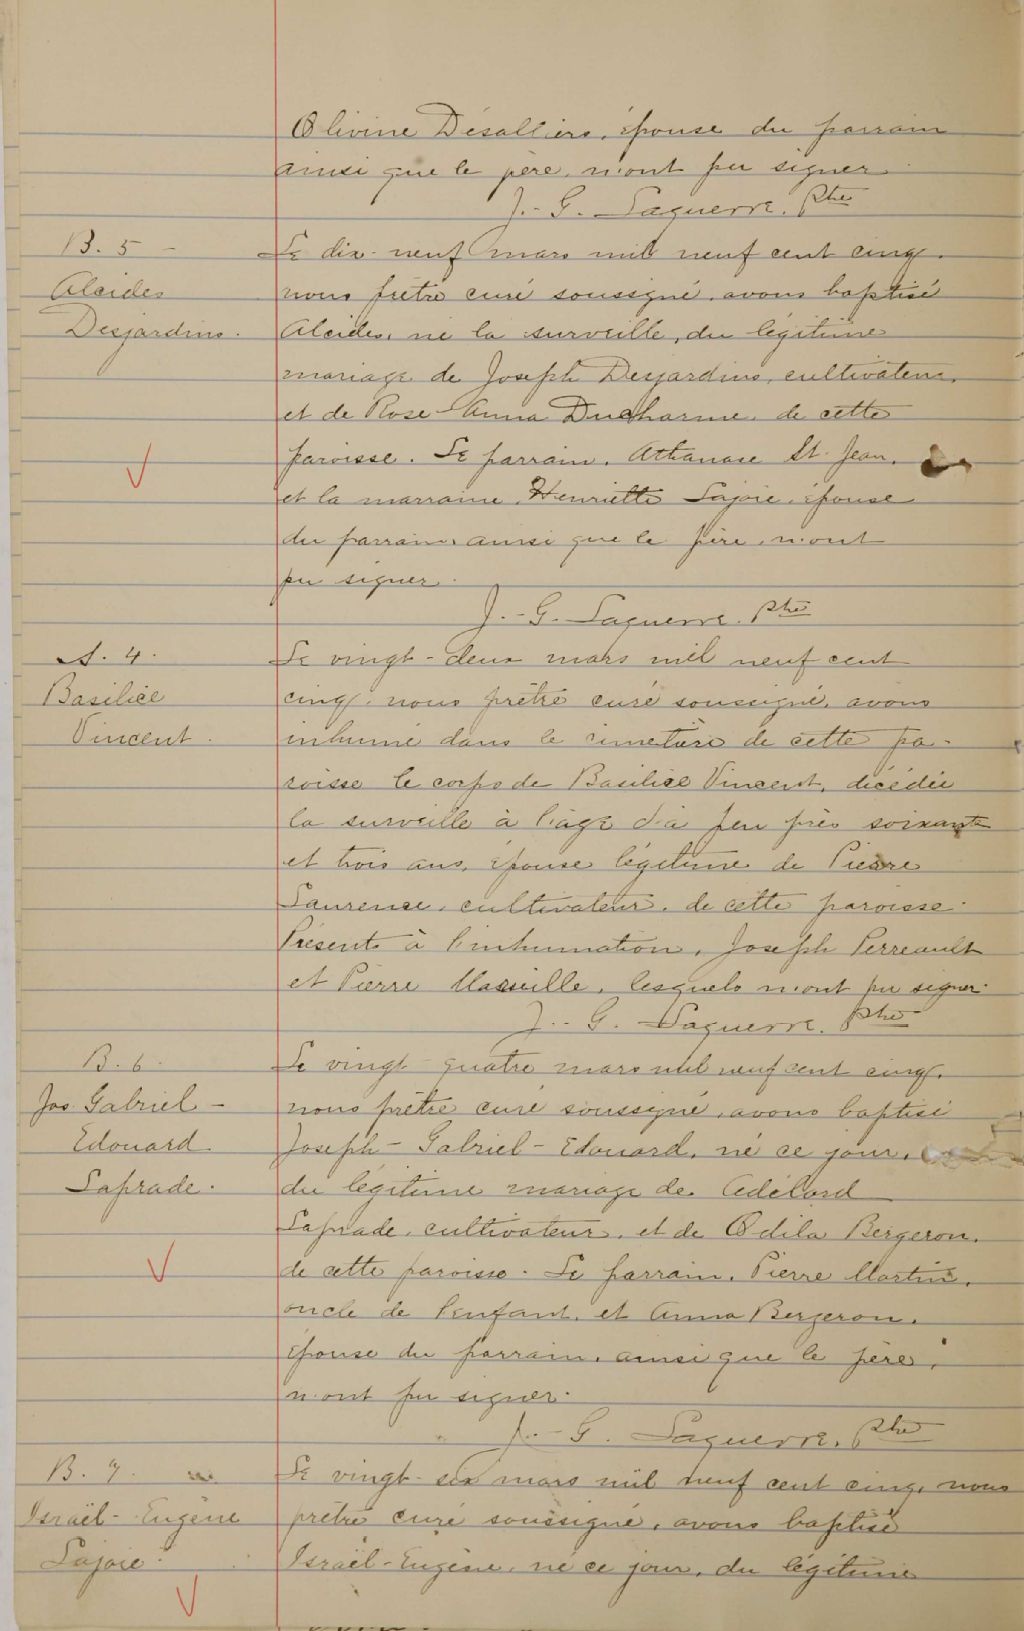 Olivine Désalliers, épouse du parrain
ainsi que le père, n'ont pu signer
J.-G. Laquerre, Ptre
B. 5 -
Alcides
Desjardins.
Le dix-neuf mars mil neuf cent cinq,
nous prêtre curé soussigné, avons baptisé
Alcides, né la surveille, du légitime
mariage de Joseph Desjardins, cultivateur,
et de Rose-Anna Ducharme, de cette
paroisse. Le parrain, Athanase St. Jean,
et la marraine, Henriette Lajoie, épouse
du parrain, ainsi que le père, n'ont
pu signer.
J.-G. Laquerre. Ptre
S. 4.
Basilice
Vincent.
Le vingt-deux mars mil neuf cent
cinq, nous prêtre curé soussigné, avons
inhumé dans le cimetière de cette pa-
roisse le corps de Basilice Vincent, décédée
la surveille à l'âge d'à peu près soixante
et trois ans, épouse légitime de Pierre
Laurence, cultivateur, de cette paroisse.
Présents à l'inhumation, Joseph Perreault
et Pierre Masseille, lesquels n'ont pu signer.
J.-G. Laquerre. Ptre
B. 6.
Jos. Gabriel-
Edouard
Laprade.
Le vingt-quatre mars mil neuf cent cinq,
nous prêtre curé soussigné, avons baptisé
Joseph-Gabriel-Edouard, né ce jour,
du légitime mariage de Adélard
Laprade, cultivateur, et de Odila Bergeron,
de cette paroisse. Le parrain, Pierre Martin,
oncle de l'enfant, et Anna Bergeron,
épouse du parrain, ainsi que le père,
n'ont pu signer.
J.-G. Laquerre, Ptre
B. 7.
Israël-Eugène
Lajoie.
Le vingt-six mars mil neuf cent cinq, nous
prêtre curé soussigné, avons baptisé
Israël-Eugène, né ce jour, du légitime